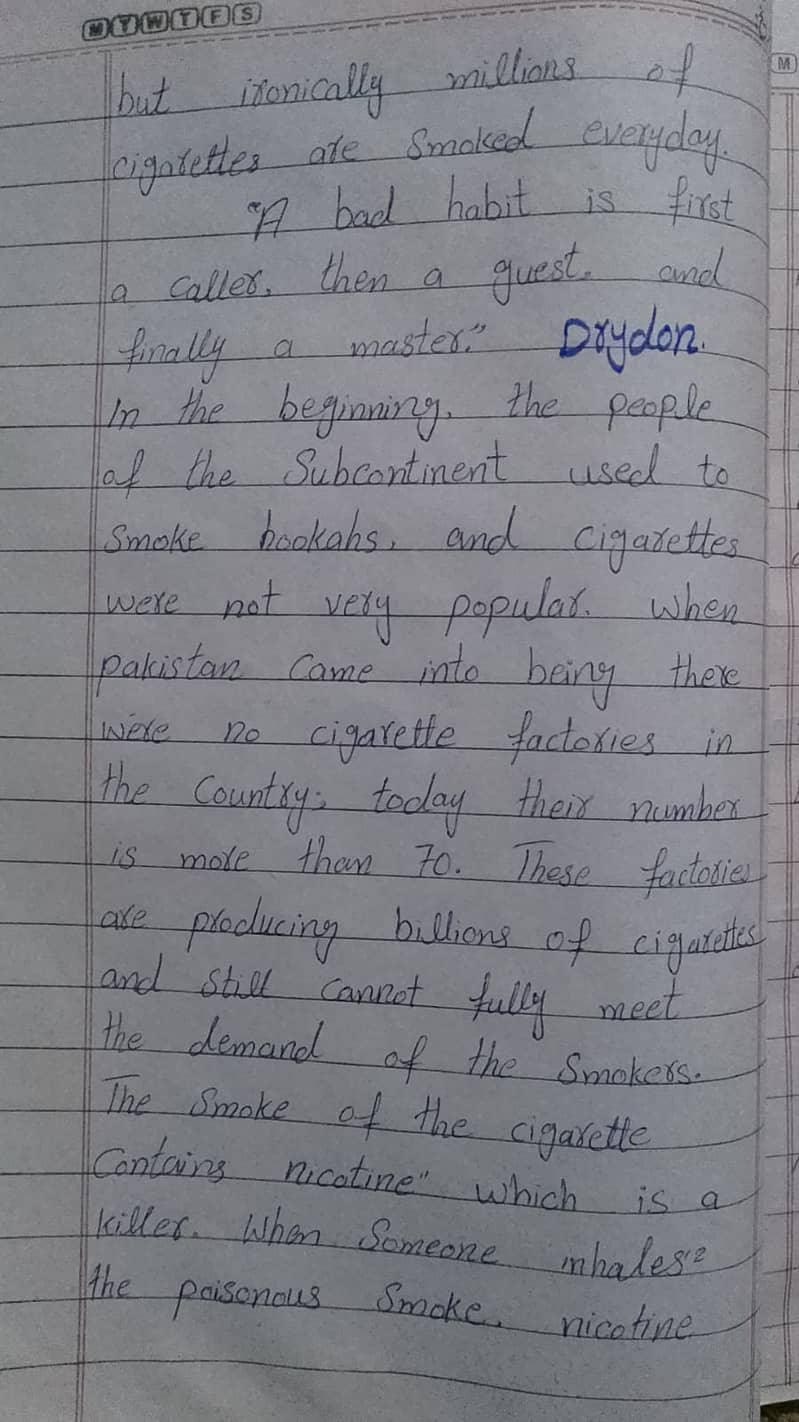 M T W T F S
M
but ironically millions of
cigarettes are Smoked everyday.
"A bad habit is first
a caller, then a guest. and
finally a master." Drydon.
In the beginning, the people
of the Subcontinent used to
Smoke hookahs, and cigarettes
were not very popular. When
pakistan Came into being there
were no cigarette factories in
the Country; today their number
is more than 70. These factories
are producing billions of cigarettes
and still cannot fully meet
the demand of the Smokers.
The Smoke of the cigarette
Contains nicotine" which is a
killer. When Someone inhales"2
the poisonous Smoke, nicotine